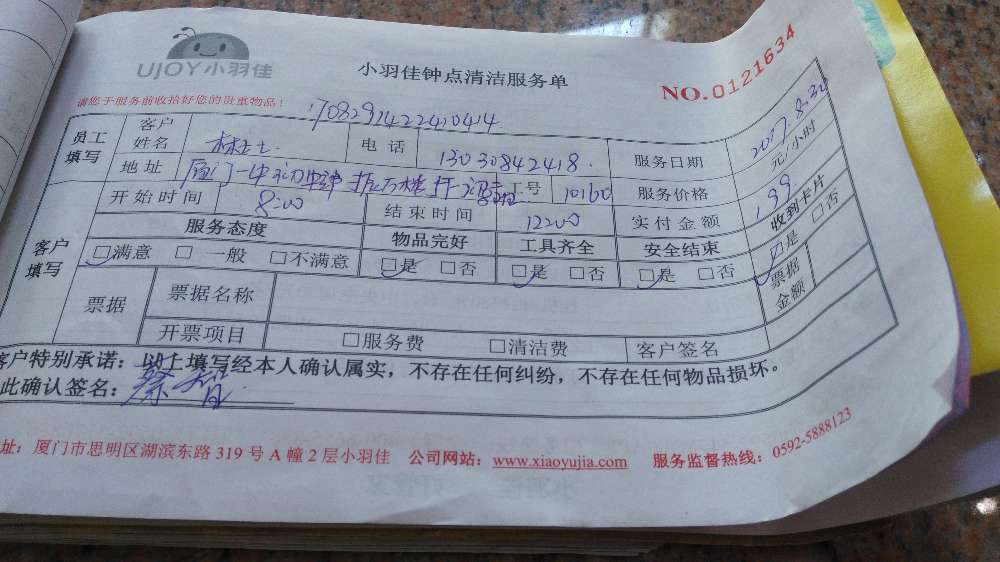 UJOY小羽佳
小羽佳钟点清洁服务单
NO.0121634
请您于服务前收拾好您的贵重物品!
员工填写 客户姓名 林女士 电话 13030842418. 服务日期 2017.8.30
地址 厦门 工号 10160 服务价格 元/小时
开始时间 8:00 结束时间 12:00 实付金额 199
客户填写 服务态度 物品完好 工具齐全 安全结束 收到卡片
□满意 □一般 □不满意 □是 □否 □是 □否 □是 □否 □是 □否
票据 票据名称 票据金额
开票项目 □服务费 □清洁费 客户签名
客户特别承诺:以上填写经本人确认属实,不存在任何纠纷,不存在任何物品损坏。
此确认签名:
址:厦门市思明区湖滨东路 319 号 A 幢 2 层小羽佳 公司网站:www.xiaoyujia.com 服务监督热线:0592-5888123